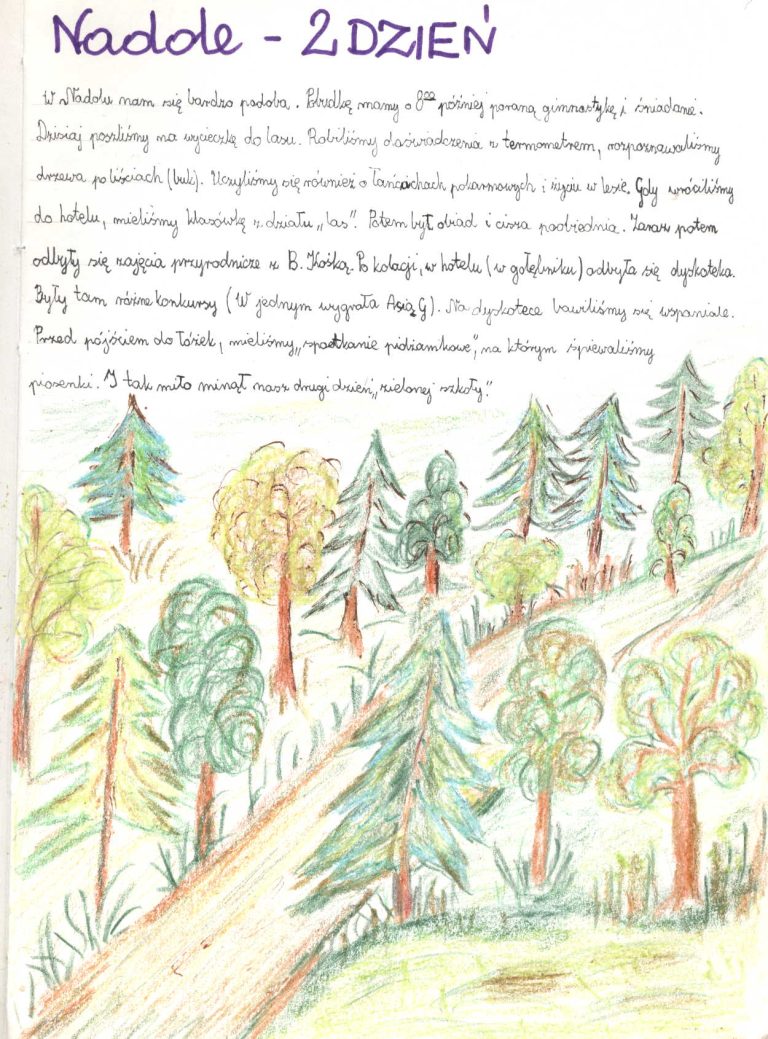 Nadole - 2 DZIEŃ
W Nadolu nam się bardzo podoba. Pobudkę mamy o 8⁰⁰ później poraną gimnastykę i śniadanie.
Dzisiaj poszliśmy na wycieczkę do lasu. Robiliśmy doświadczenia z termometrem, rozpoznawaliśmy
drzewa po liściach (buk). Uczyliśmy się również o łańcachach pokarmowych i życiu w lesie. Gdy wróciliśmy
do hotelu, mieliśmy klasówkę z działu „las". Potem był obiad i cisza poobiednia. Zaraz potem
odbyły się zajęcia przyrodnicze z B. Kośką. Po kolacji, w hotelu (w gołębniku) odbyła się dyskoteka.
Były tam różne konkursy (W jednym wygrała Asia G). Na dyskotece bawiliśmy się wspaniale.
Przed pójściem do łóżek, mieliśmy „spotkanie pidżamkowe", na którym śpiewaliśmy
piosenki. I tak miło minął nasz drugi dzień „zielonej szkoły."